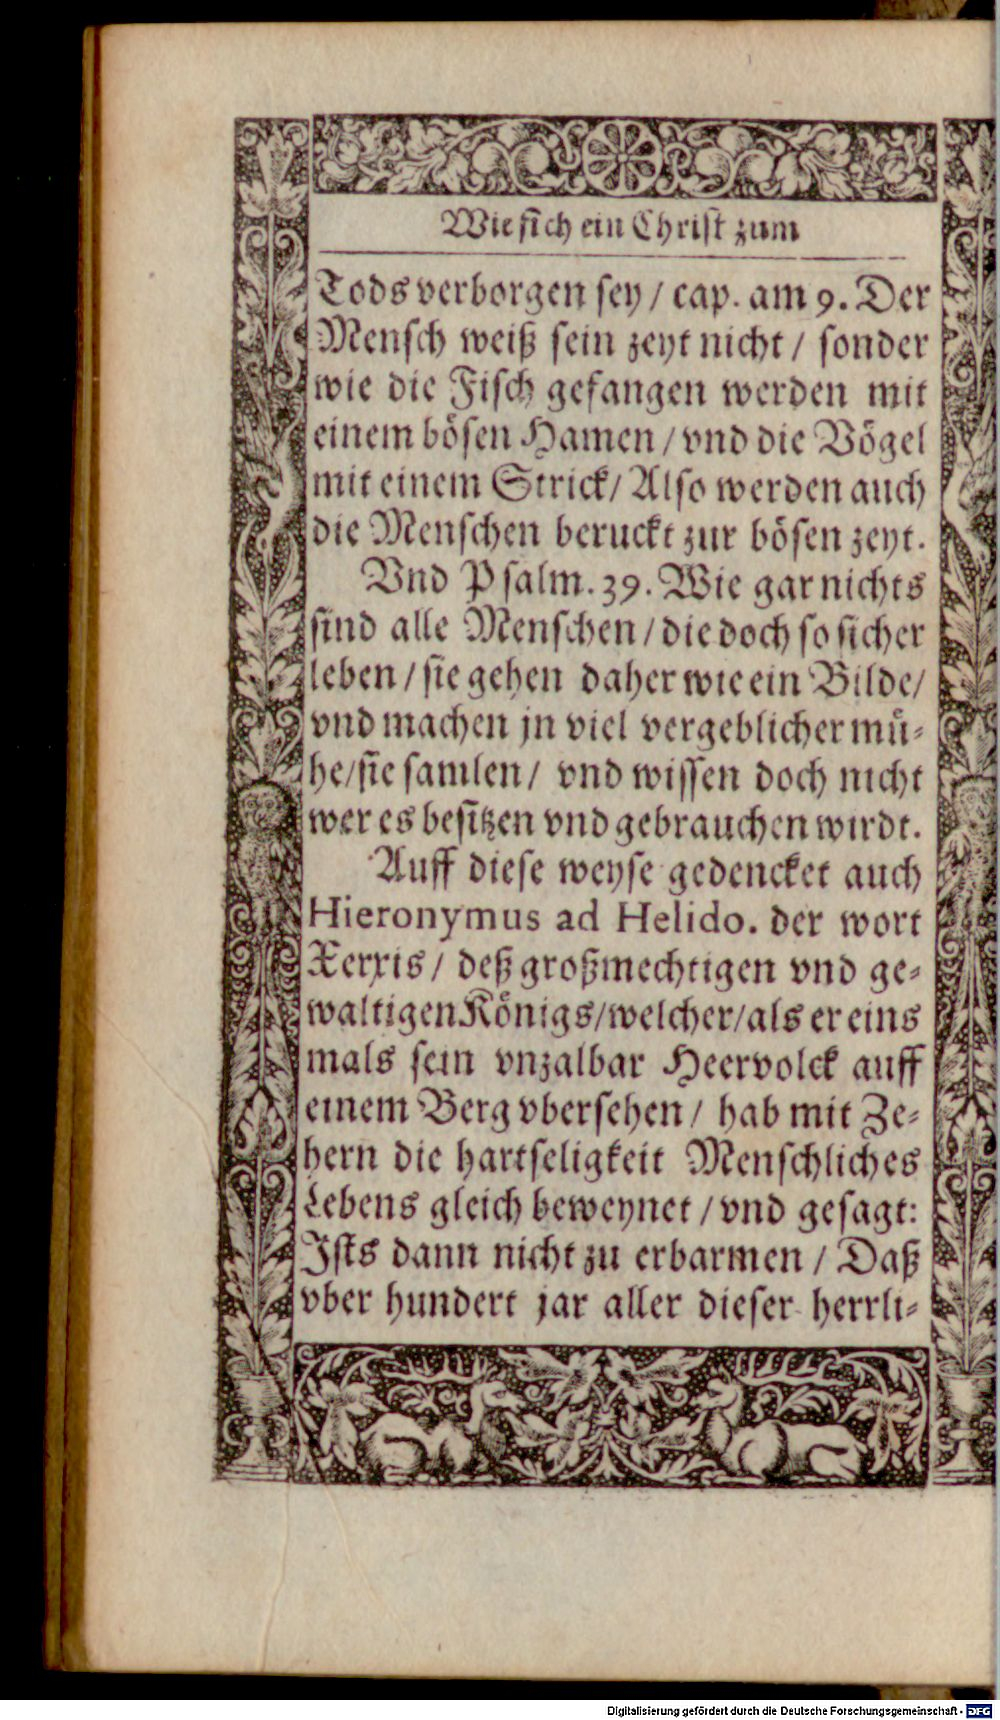 Wie sich ein Christ zum
Tods verborgen sey / cap. am 9. Der
Mensch weiß sein zeyt nicht / sonder
wie die Fisch gefangen werden mit
einem bösen Hamen / vnd die Vögel
mit einem Strick / Also werden auch
die Menschen beruckt zur bösen zeyt.
Vnd Psalm. 39. Wie gar nichts
sind alle Menschen / die doch so sicher
leben / sie gehen daher wie ein Bilde /
vnd machen jn viel vergeblicher mü-
he / sie samlen / vnd wissen doch nicht
wer es besitzen vnd gebrauchen wirdt.
Auff diese weyse gedencket auch
Hieronymus ad Helido. der wort
Xerxis / deß großmechtigen vnd ge-
waltigen Königs / welcher / als er eins
mals sein vnzalbar Heervolck auff
einem Berg vbersehen / hab mit Ze-
hern die hartseligkeit Menschliches
Lebens gleich beweynet / vnd gesagt:
Ists dann nicht zu erbarmen / Daß
vber hundert jar aller dieser herrli-
Digitalisierung gefördert durch die Deutsche Forschungsgemeinschaft - DFG